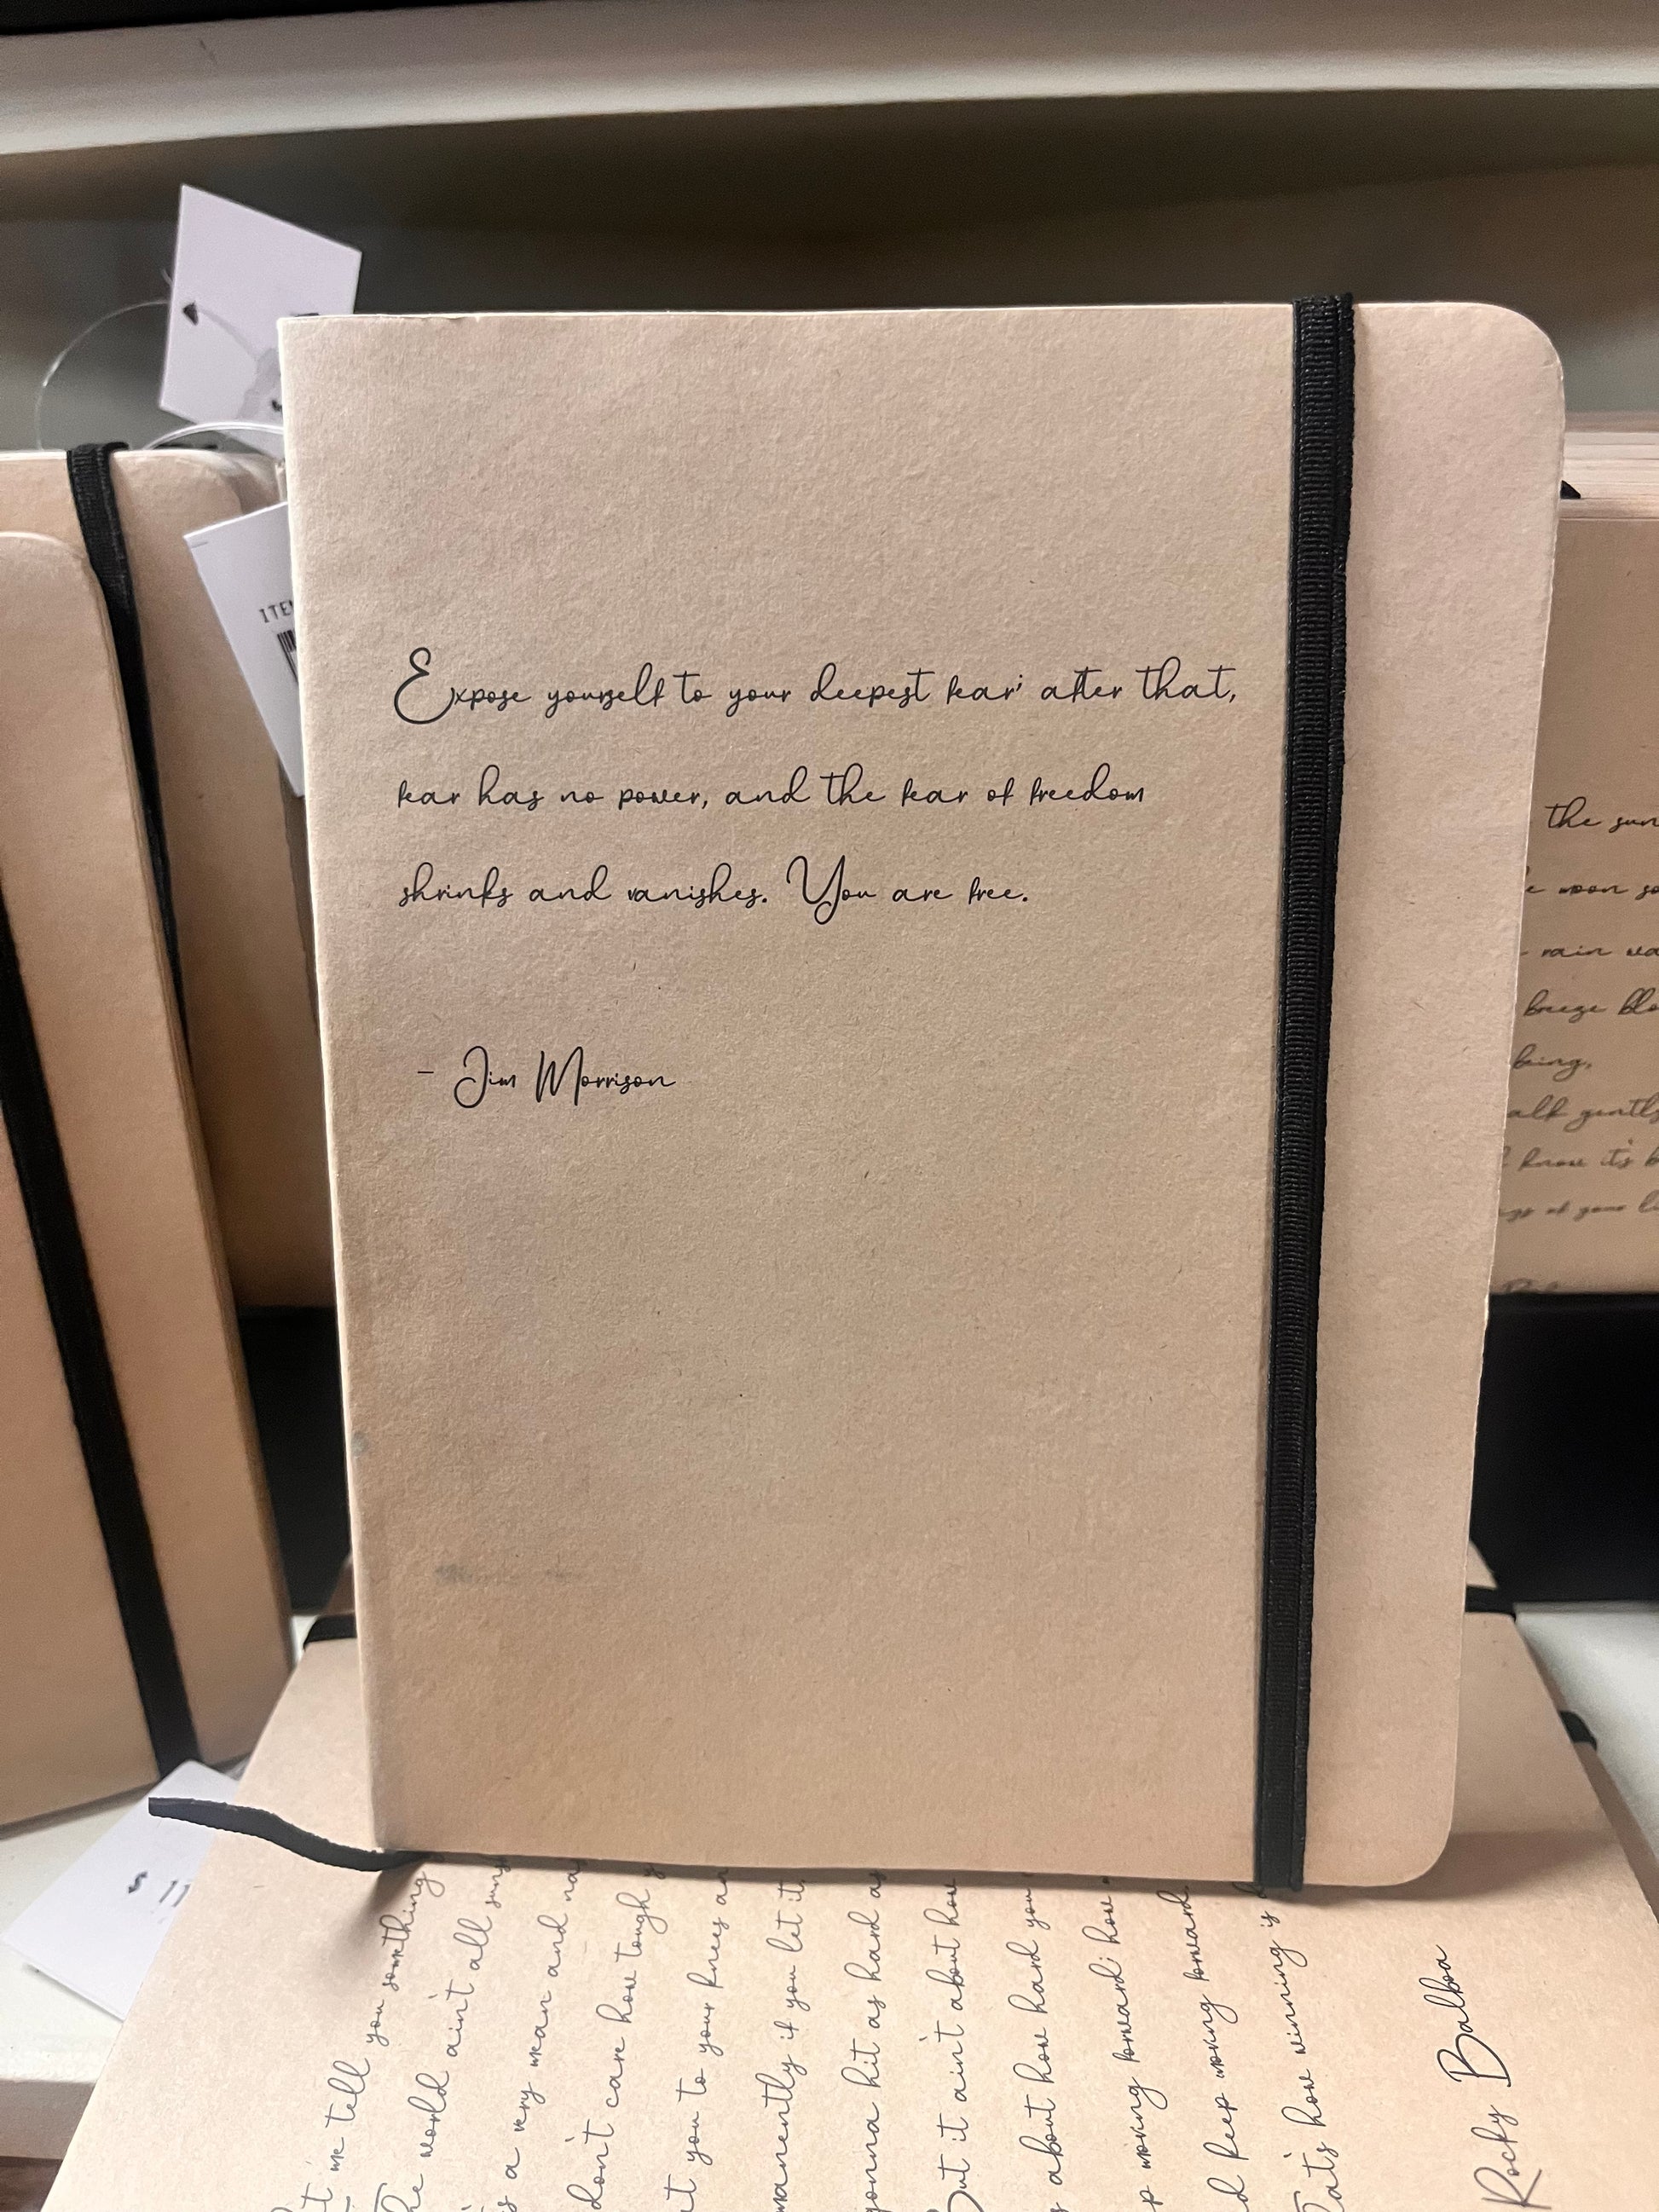 Expose yourself to your deepest fear; after that,
fear has no power, and the fear of freedom
shrinks and vanishes. You are free.
- Jim Morrison
ITEM
the sun
upon
rain
breeze
being,
gently
know it's
of your
$ 11
me tell you something
The world ain't all
is a very mean and
don't care how tough
you to your knees
permanently if you let it.
gonna hit as hard as
But it ain't about how
about how hard you
moving forward; how
keep moving forward.
That's how winning is
Rocky Balboa